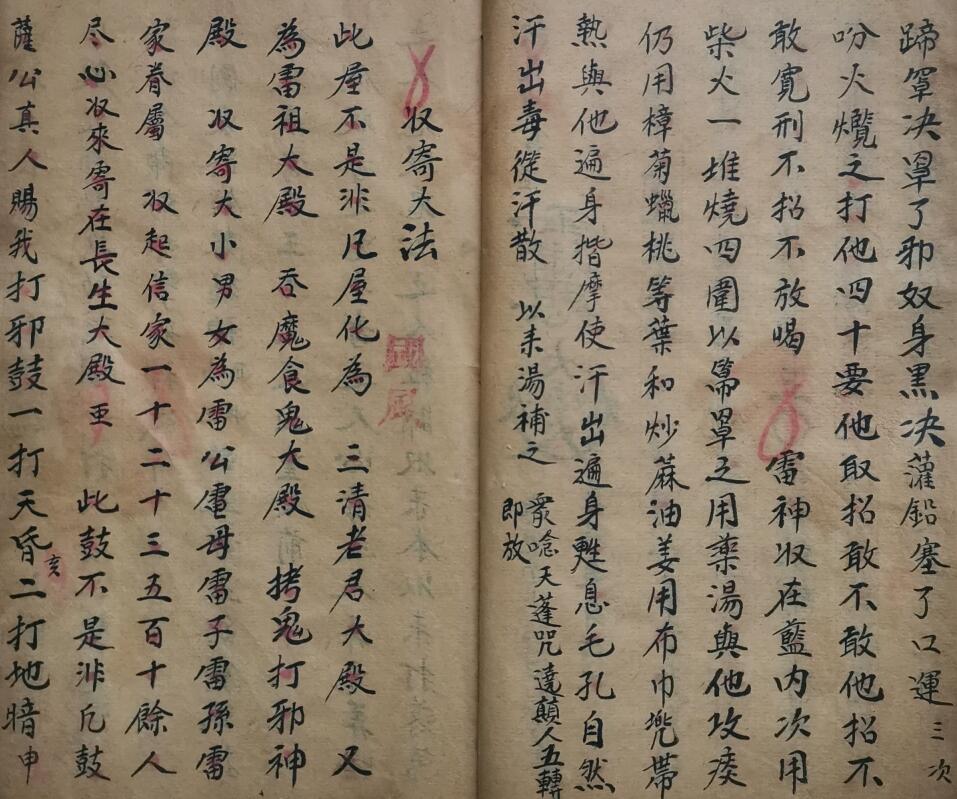 蹄罩决罩了邪奴身黑决灌鉛塞了口運三次
吩火爁之打他四十要他取招敢不敢他招不
敢寬刑不招不放喝 雷神収在藍內次用
柴火一堆燒四圍以篅罩之用藥湯與他攻痰
仍用樟菊蠟桃等葉和炒蔴油姜用布巾兠帶
熱與他遍身揩摩使汗出遍身甦息毛孔自然
汗出毒從汗散 以耒湯補之 眾唸天蓬咒達顛人五轉
即放
収寄大法
此屋不是非凡屋化為 三清老君大殿 又
為雷祖大殿 吞魔食鬼大殿 拷鬼打邪神
殿 収寄大小男女為雷公電母雷子雷孫雷
家眷屬 収起信家一十二十三五百十餘人
尽心収來寄在長生大殿王 此鼓不是非凡鼓
薩公真人賜我打邪鼓一打天昏亥二打地暗申